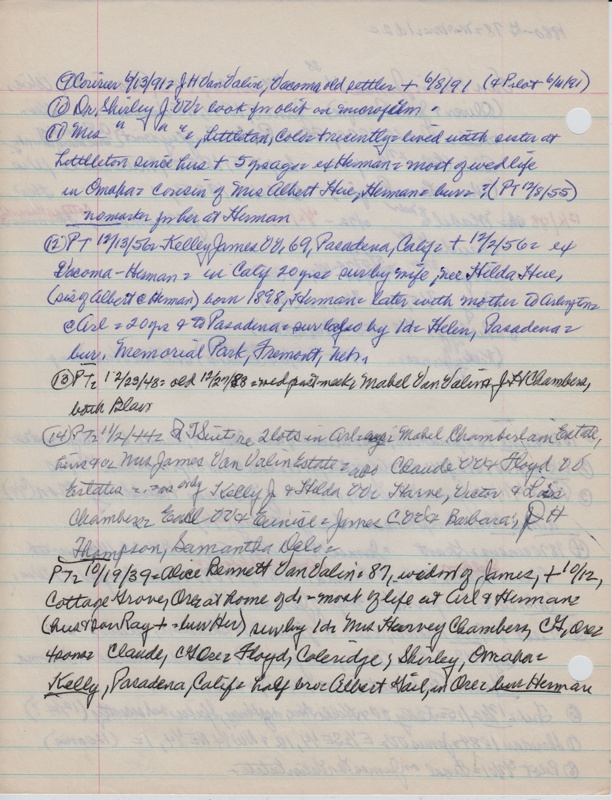 ⑨ Courier 6/13/91 = J H Van Valin, Tacoma old settler + 6/8/91 (& Pilot 6/11/91)
⑩ Dr. Shirley J. VV = look for obit on microfilm =
⑪ Mrs " " Va " =, Littleton, Colo + recently = lived with sister at
Littleton since hus + 5 yrs ago = ex Herman = most of wed life
in Omaha = cousin of Mrs Albert Hue, Herman = bur = ? (PT 12/8/55)
no marker for her at Herman
⑫ PT 12/13/56 = Kelley James VV, 69, Pasadena, Calif = + 12/2/56 = ex
Tacoma - Herman = in Calif 20 yrs = sur by wife, nee Hilda Hue,
(sis of Albert @ Herman) born 1898, Herman = later with mother to Arlington =
@ Arl = 20 yrs & to Pasadena = sur also by 1 d = Helen, Pasadena =
bur, Memorial Park, Fremont, Nebr
⑬ PT = 12/23/48 = old 12/27/88 = wed past week = Mabel Van Valin & J H Chambers,
both Blair
⑭ PT = 11/2/44 = QT Suit = re 2 lots in Arl = Mabel Chamberlain Estate,
heirs & Mrs James Van Valin Estate = also Claude VV & Floyd VV
Estates = only Kelly J & Hilda VV = Harve, Victor & Lois
Chambers = Earl VV & Eunise = James C VV & Barbara, H
Thompson, Samantha
PT = 10/19/39 = Alice Bennett Van Valin = 87, widow of James, + 10/12,
Cottage Grove, Ore = at home of d = most of life at Arl & Herman =
(hus & son Ray + = bur Her) sur by 1 d = Mrs Harvey Chambers, CG, Ore =
4 sons = Claude, CG Ore = Floyd, Coleridge; Shirley, Omaha =
Kelly, Pasadena, Calif = half bro = Albert Gail, in Ore = bur Herman